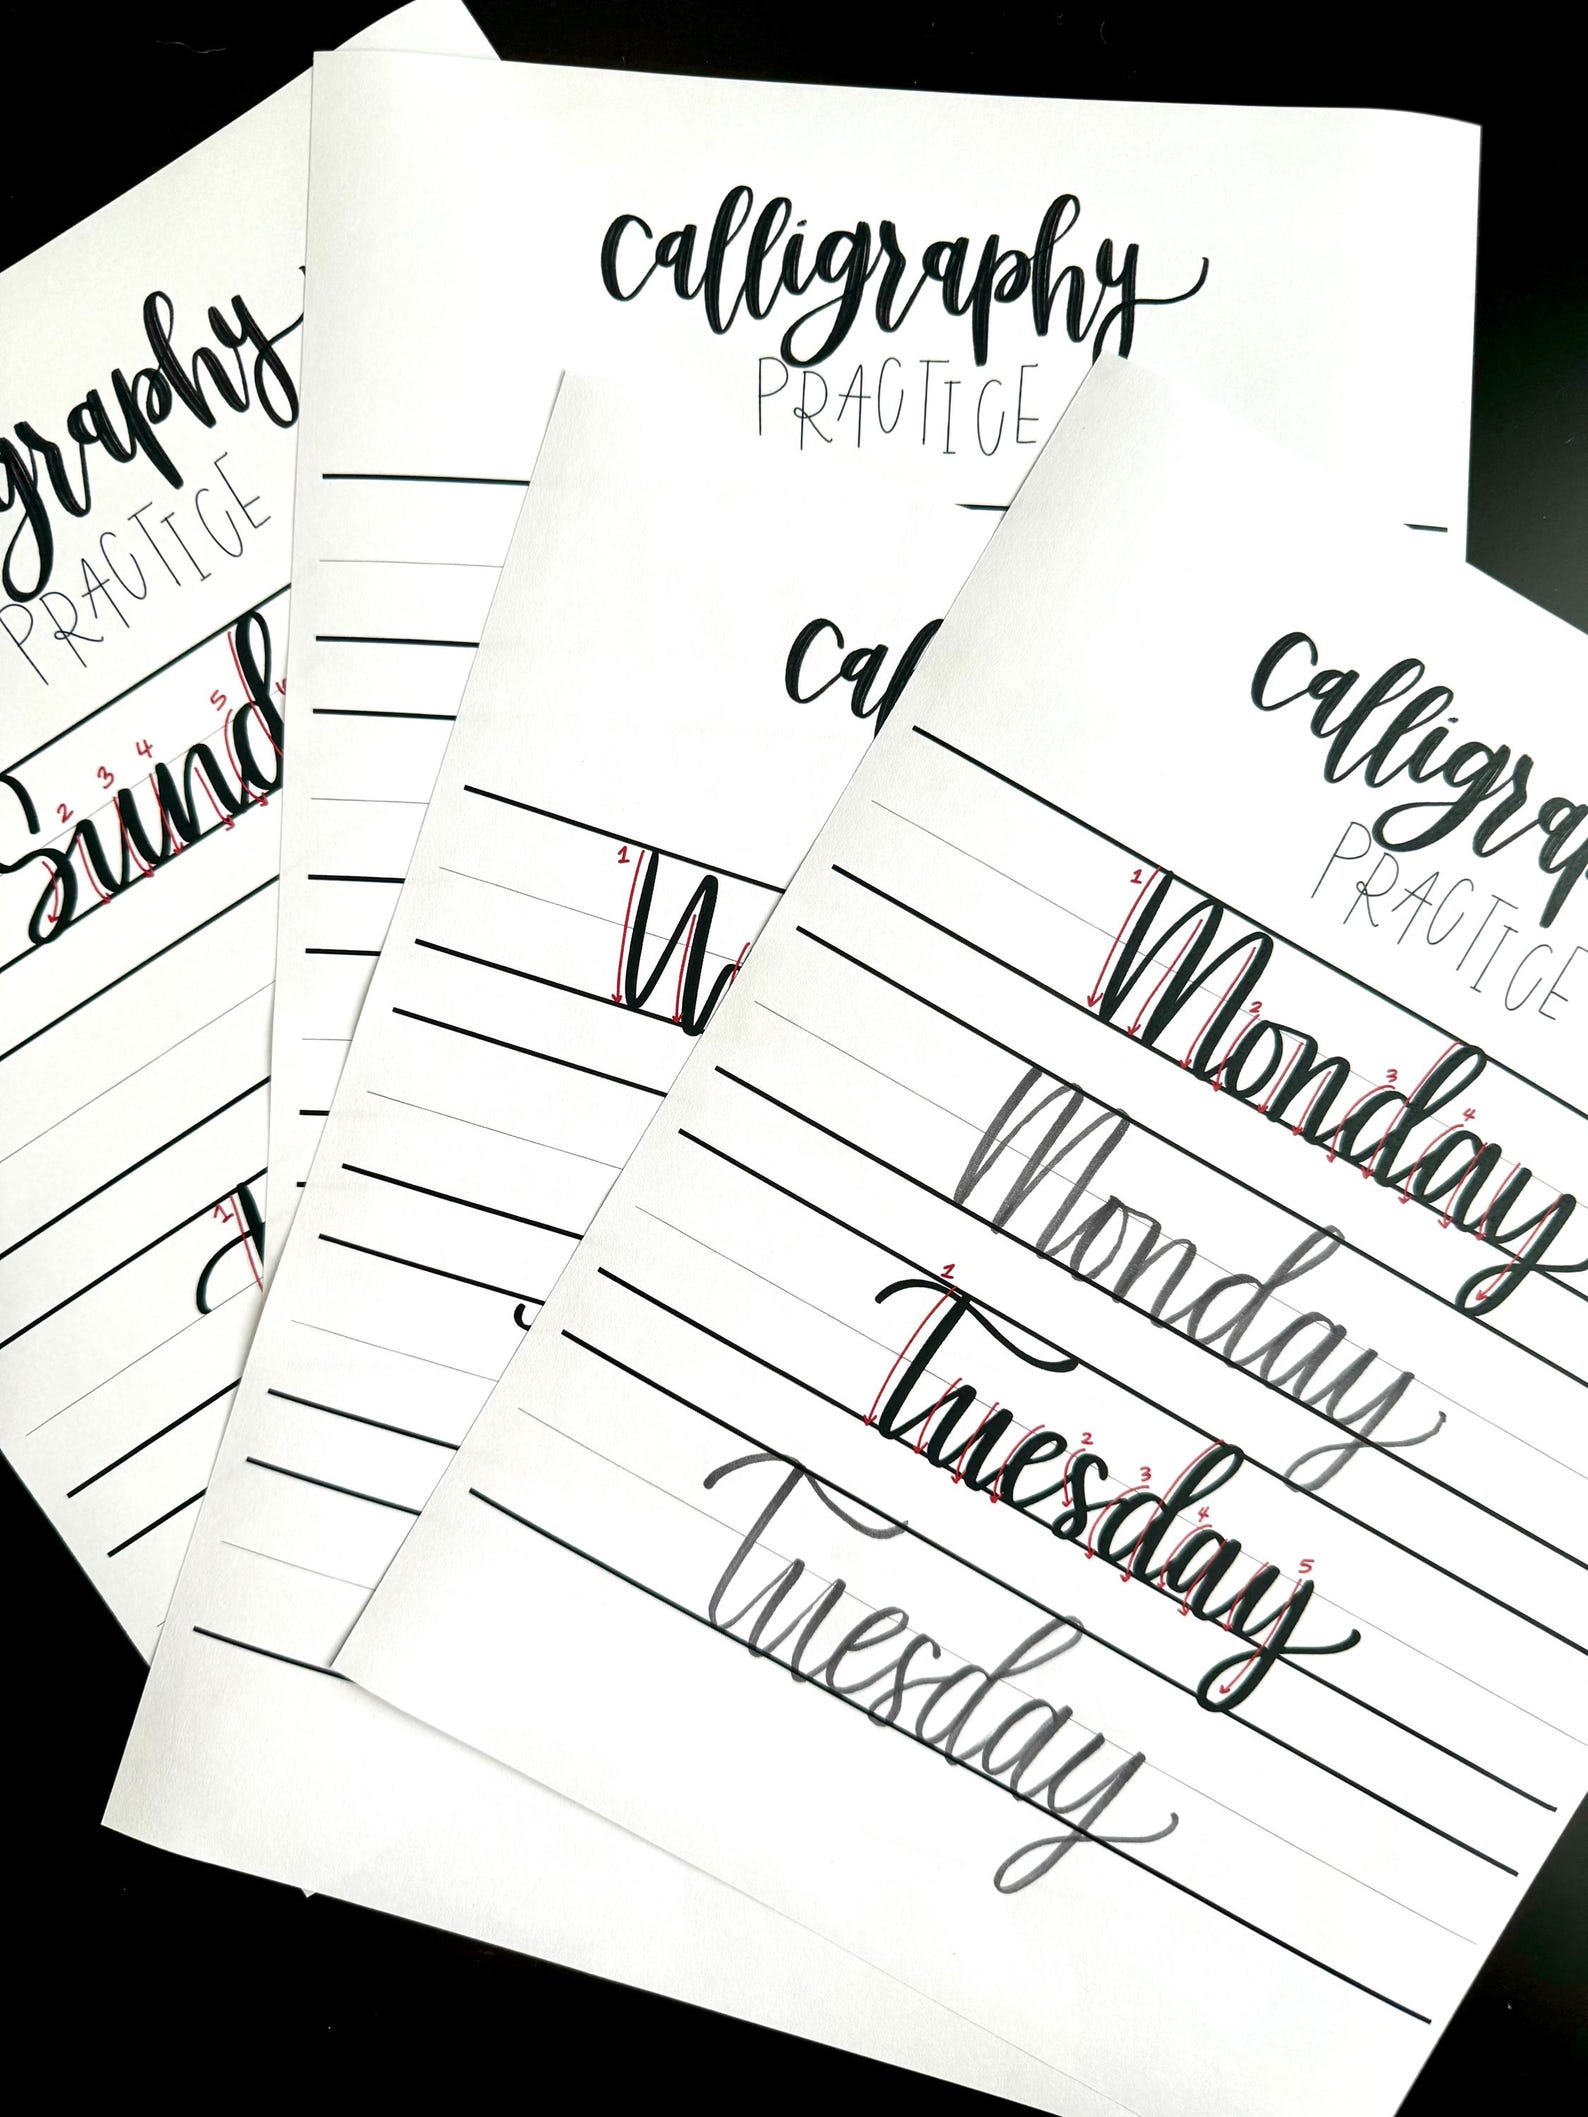 calligraphy
PRACTICE
graphy
PRACTICE
5
4
3
2
Sund
1
cal
1
W
calligra
PRACTICE
1 2 3 4
Monday
Monday
1 2 3 4 5
Tuesday
Tuesday